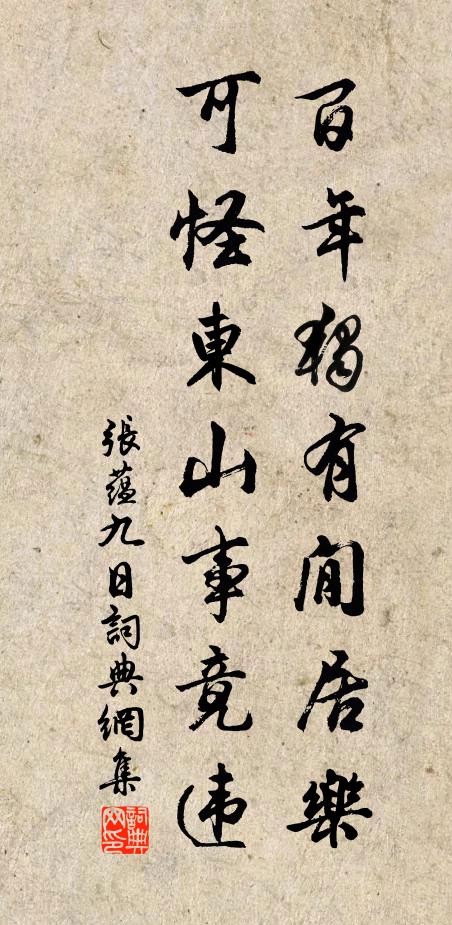 百年獨有閒居樂
可怪東山事竟違
張蘊九日詞典網集
詞典
网印